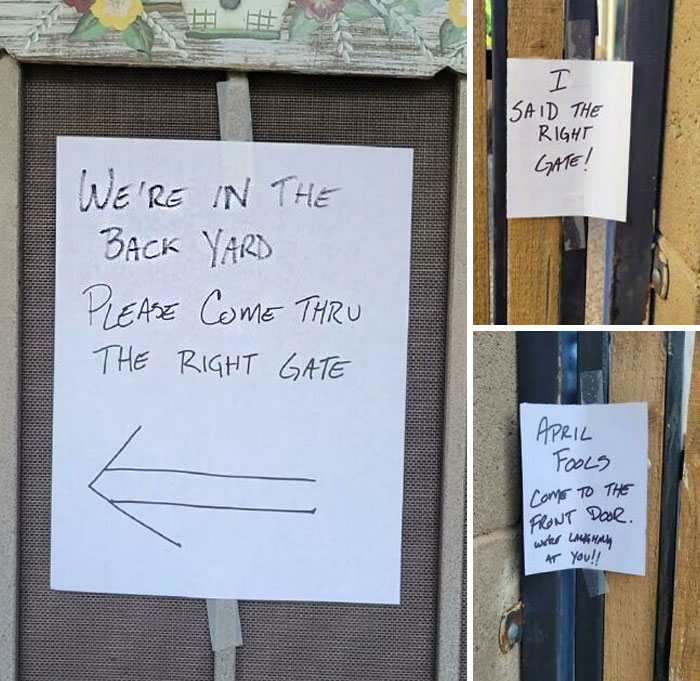 WE'RE IN THE
BACK YARD
PLEASE COME THRU
THE RIGHT GATE
I
SAID THE
RIGHT
GATE!
APRIL
FOOLS
COME TO THE
FRONT DOOR.
WE'RE LAUGHING
AT YOU!!